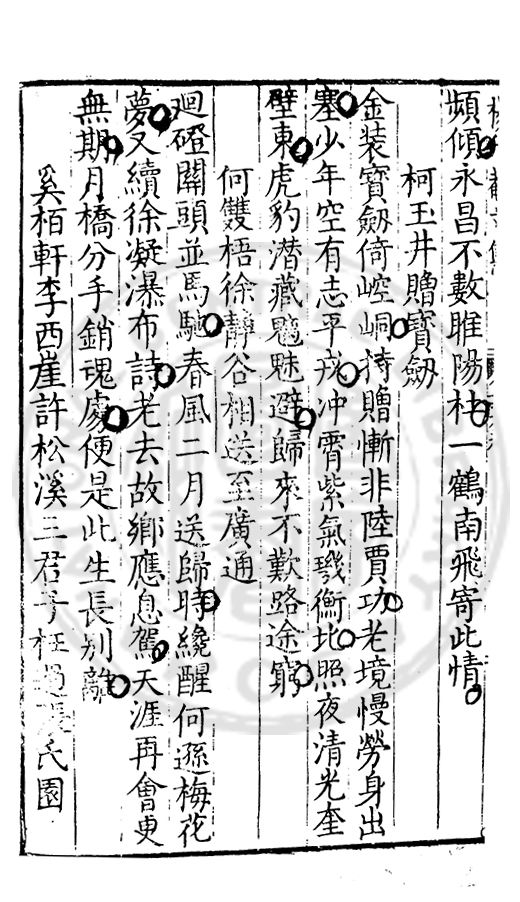 頻傾永昌不數睢陽杜一鶴南飛寄此情
柯玉井贈寶劒
金装寶劒倚崆峒持贈慚非陸賈功老境慢勞身出
塞少年空有志平戎冲霄紫氣璣衡北照夜清光奎
壁東虎豹潜藏魑魅避歸來不歎路途窮
何雙梧徐靜谷相送至廣通
迴磴關頭並馬馳春風二月送歸時纔醒何遜梅花
夢又續徐凝瀑布詩老去故鄉應息駕天涯再會更
無期月橋分手銷魂處便是此生長别離
奚栢軒李西崖許松溪三君子枉過張氏園